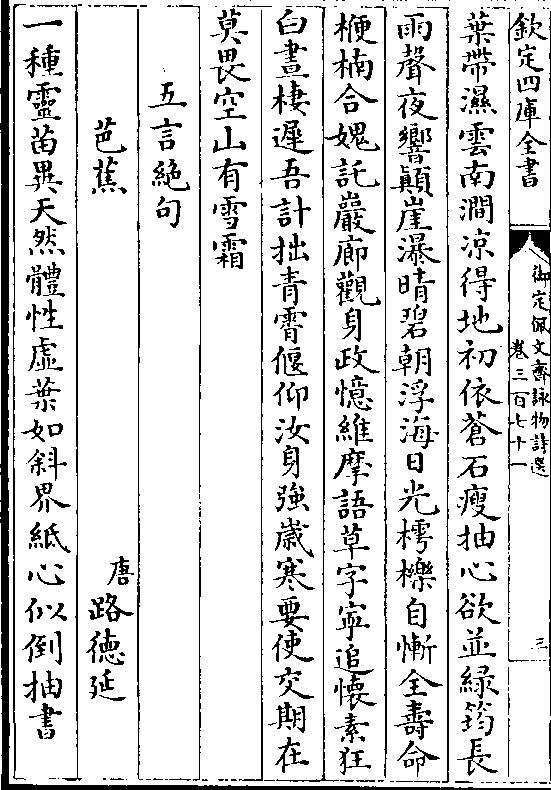 欽定四庫全書
御定佩文齋詠物詩選
卷三百七十一
三
葉帶濕雲南澗凉得地初依蒼石瘦抽心欲並緑筠長
雨聲夜響顛崖瀑晴碧朝浮海日光樗櫟自慚全壽命
楩楠合媿託巖廊觀身政憶維摩語草字寧追懷素狂
白晝棲遲吾計拙青霄偃仰汝身強歲寒要使交期在
莫畏空山有雪霜
五言絶句
芭蕉
唐路德延
一種靈苗異天然體性虛葉如斜界紙心似倒抽書